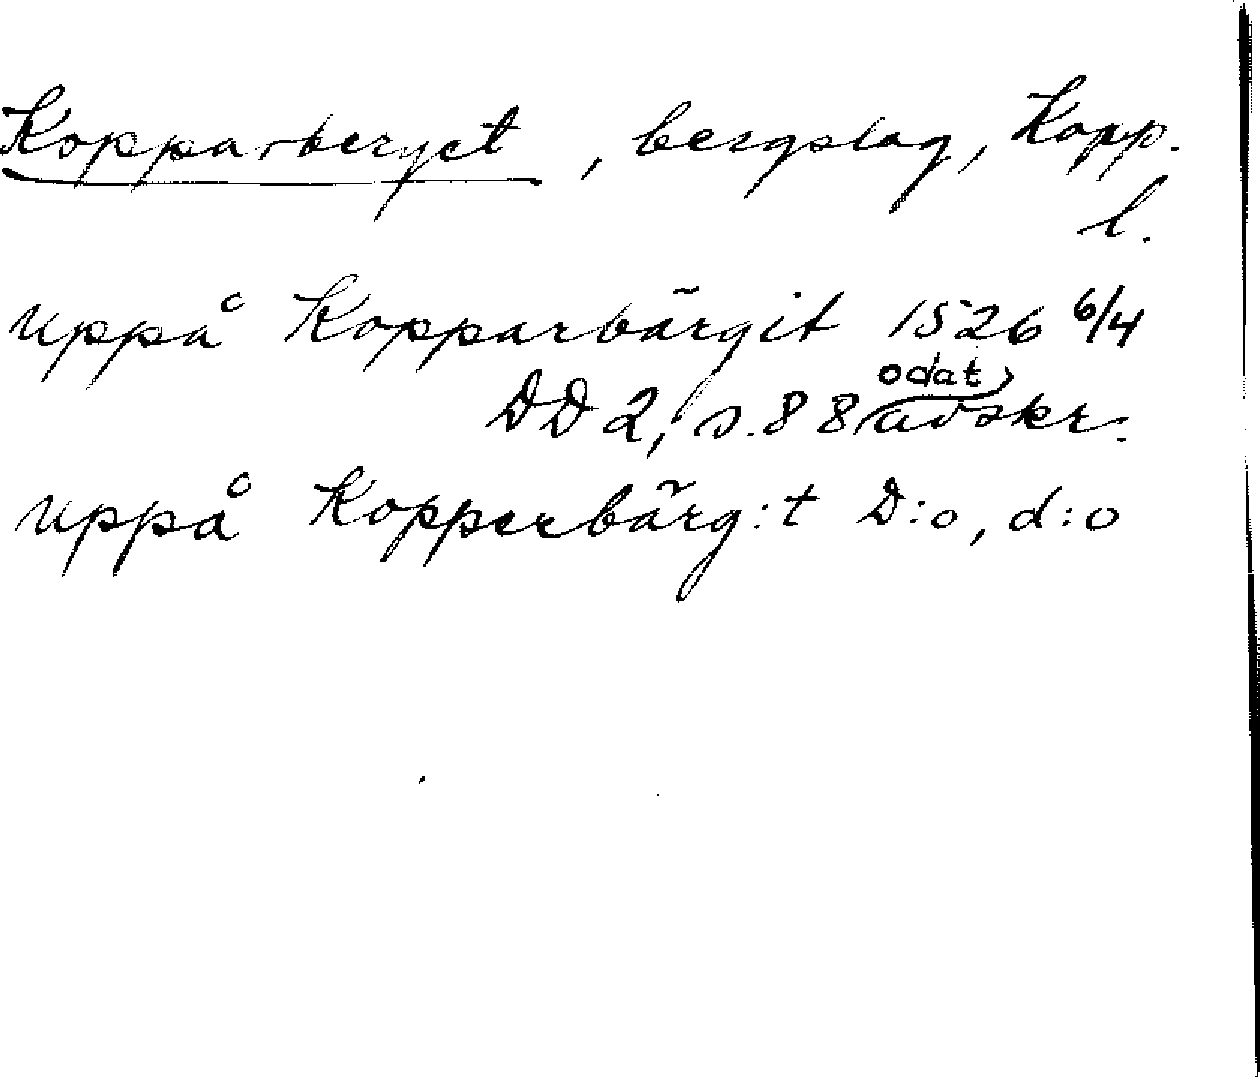 Kopparberget, bergslag, Kopp.
l.
uppå Kopparbärgit 1526 6/4
DD 2, s. 88 odat avskr.
uppå Kopperbärg:t D:o, d:o